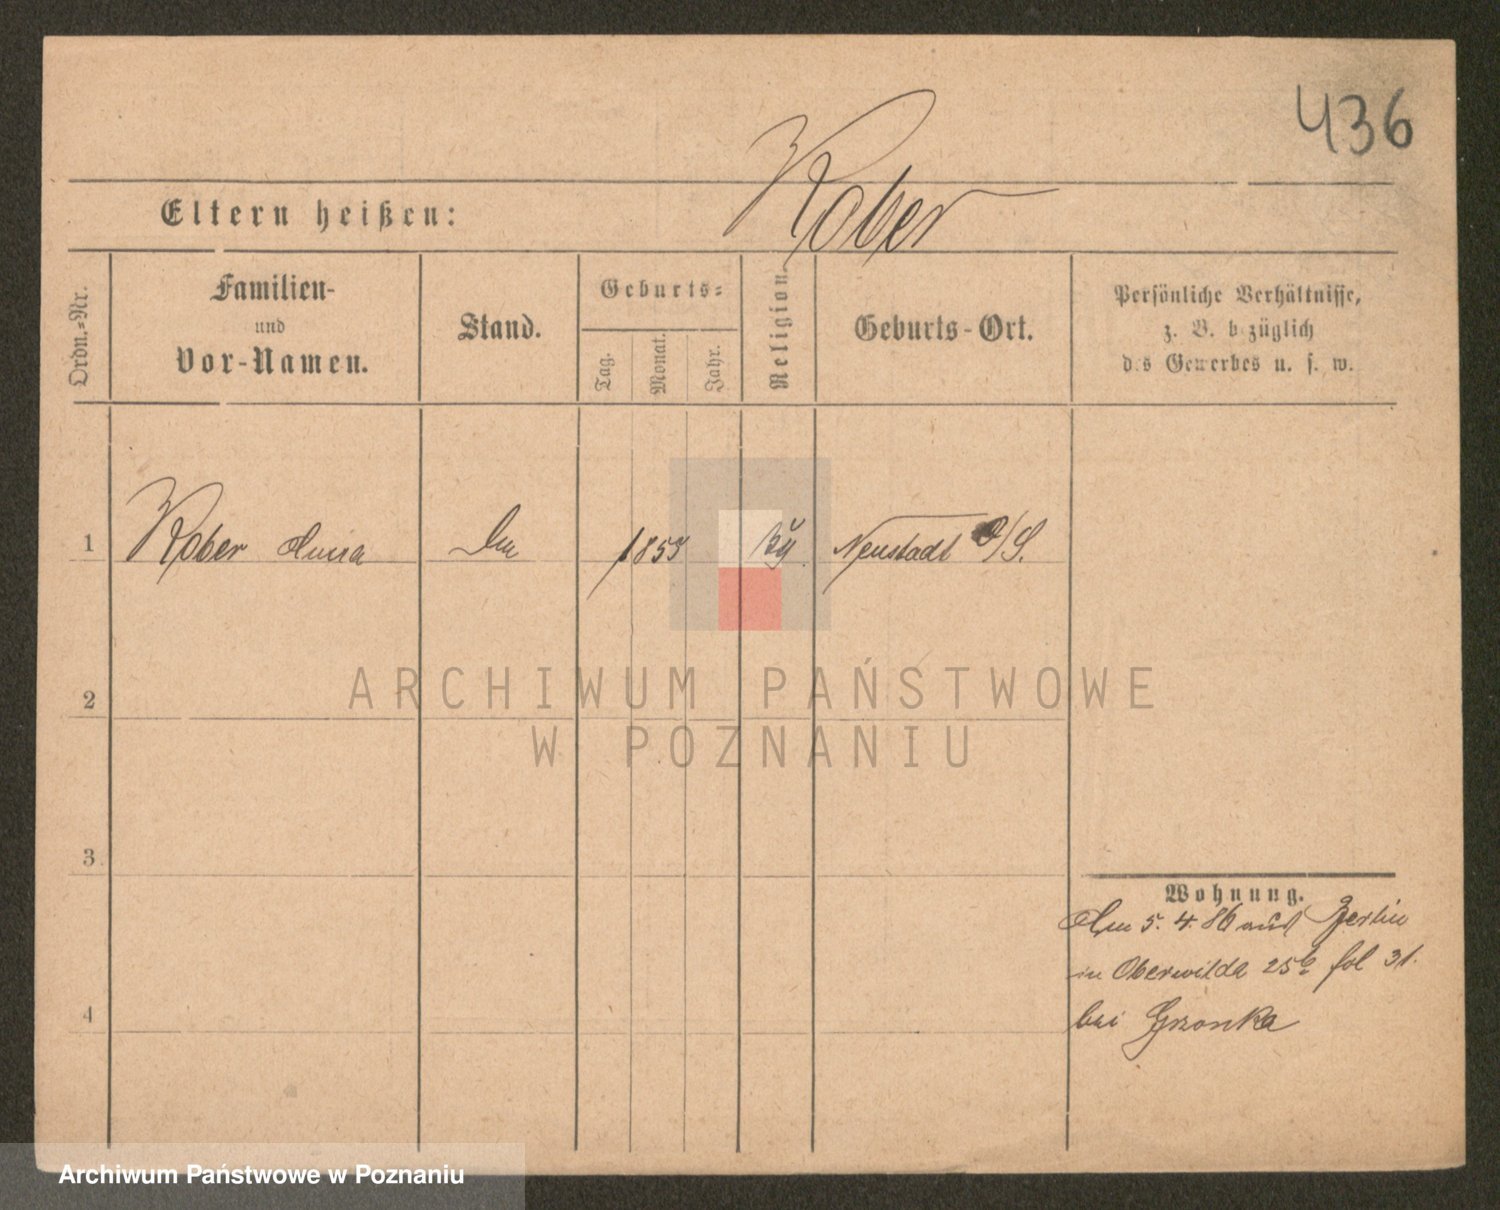 436
Kober
Eltern heißen:
Ordn.=Nr.
Familien-
und
Vor-Namen.
Stand.
Geburts=
Tag.
Monat.
Jahr.
Religion
Geburts-Ort.
Persönliche Verhältnisse,
z. B. bezüglich
des Gewerbes u. s. w.
1
Kober Anna
1855
Neustadt O/S.
2
ARCHIWUM PAŃSTWOWE
W POZNANIU
3
Wohnung.
Am 5. 4. 86 aus Berlin
in Oberwilda 25b fol 31.
bei Gronka
4
Archiwum Państwowe w Poznaniu